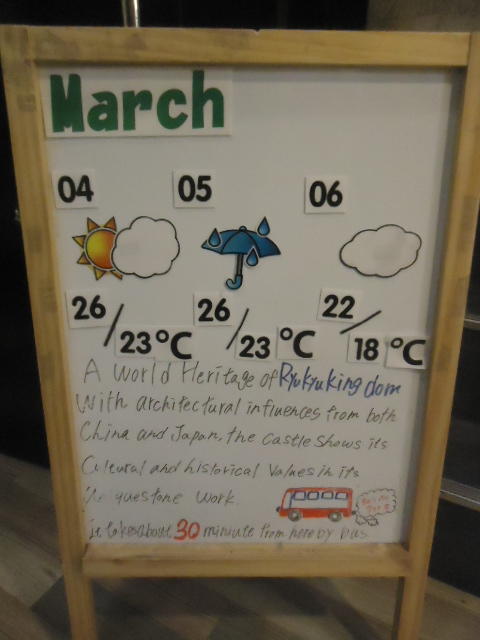 March
04 05 06
26/23°C 26/23°C 22/18°C
A World Heritage of Ryukyu king dom
With architectural influences from both
China and Japan, the Castle shows its
Cultural and historical Values in its
questone work.
It takes about 30 miniute from here by bus